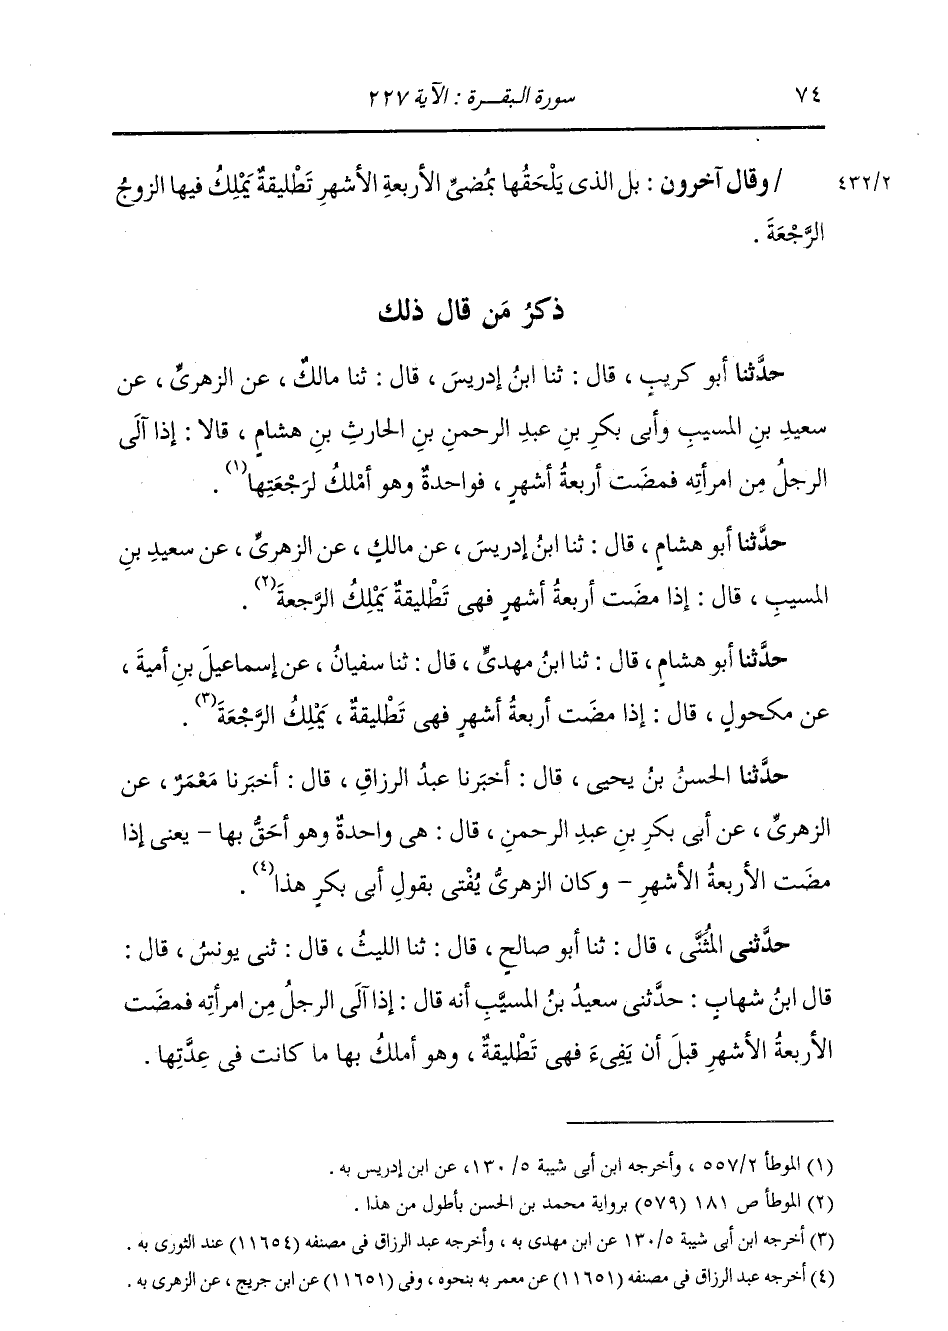 ٧٤ سورة البقـــرة : الآية ٢٢٧
٤٣٢/٢ / وقال آخرون : بل الذى يَلْحَقُها بمُضىِّ الأربعةِ الأشهرِ تَطْليقةٌ يَمْلِكُ فيها الزوجُ
الرَّجْعَةَ .
ذكرُ مَن قال ذلك
حدَّثنا أبو كريبٍ ، قال : ثنا ابنُ إدريسَ ، قال : ثنا مالكٌ ، عن الزهرىِّ ، عن
سعيدِ بنِ المسيبِ وأبى بكرِ بنِ عبدِ الرحمنِ بنِ الحارثِ بنِ هشامٍ ، قالا : إذا آلَى
الرجلُ مِن امرأتِه فمضَت أربعةُ أشهرٍ ، فواحدةٌ وهو أمْلكُ لرَجْعَتِها(١) .
حدَّثنا أبو هشامٍ ، قال : ثنا ابنُ إدريسَ ، عن مالكٍ ، عن الزهرىِّ ، عن سعيدِ بنِ
المسيبِ ، قال : إذا مضَت أربعةُ أشهرٍ فهى تَطْليقةٌ يَمْلِكُ الرَّجعةَ(٢) .
حدَّثنا أبو هشامٍ ، قال : ثنا ابنُ مهدىٍّ ، قال : ثنا سفيانُ ، عن إسماعيلَ بنِ أميةَ ،
عن مكحولٍ ، قال : إذا مضَت أربعةُ أشهرٍ فهى تَطْليقةٌ ، يَمْلِكُ الرَّجْعَةَ(٣) .
حدَّثنا الحسنُ بنُ يحيى ، قال : أخبَرنا عبدُ الرزاقِ ، قال : أخبَرنا مَعْمَرٌ ، عن
الزهرىِّ ، عن أبى بكرِ بنِ عبدِ الرحمنِ ، قال : هى واحدةٌ وهو أحَقُّ بها – يعنى إذا
مضَت الأربعةُ الأشهرِ – وكان الزهرىُّ يُفْتى بقولِ أبى بكرٍ هذا(٤) .
حدَّثنى المُثَنَّى ، قال : ثنا أبو صالحٍ ، قال : ثنا الليثُ ، قال : ثنى يونسُ ، قال :
قال ابنُ شهابٍ : حدَّثنى سعيدُ بنُ المسيَّبِ أنه قال : إذا آلَى الرجلُ مِن امرأتِه فمضَت
الأربعةُ الأشهرِ قبلَ أن يَفِىءَ فهى تَطْليقةٌ ، وهو أملكُ بها ما كانت فى عِدَّتِها .
(١) الموطأ ٥٥٧/٢ ، وأخرجه ابن أبى شيبة ١٣٠/٥، عن ابن إدريس به .
(٢) الموطأ ص ١٨١ (٥٧٩) برواية محمد بن الحسن بأطول من هذا .
(٣) أخرجه ابن أبى شيبة ١٣٠/٥ عن ابن مهدى به ، وأخرجه عبد الرزاق فى مصنفه (١١٦٥٤) عند الثورى به .
(٤) أخرجه عبد الرزاق فى مصنفه (١١٦٥١) عن معمر به بنحوه ، وفى (١١٦٥١) عن ابن جريج ، عن الزهرى به .